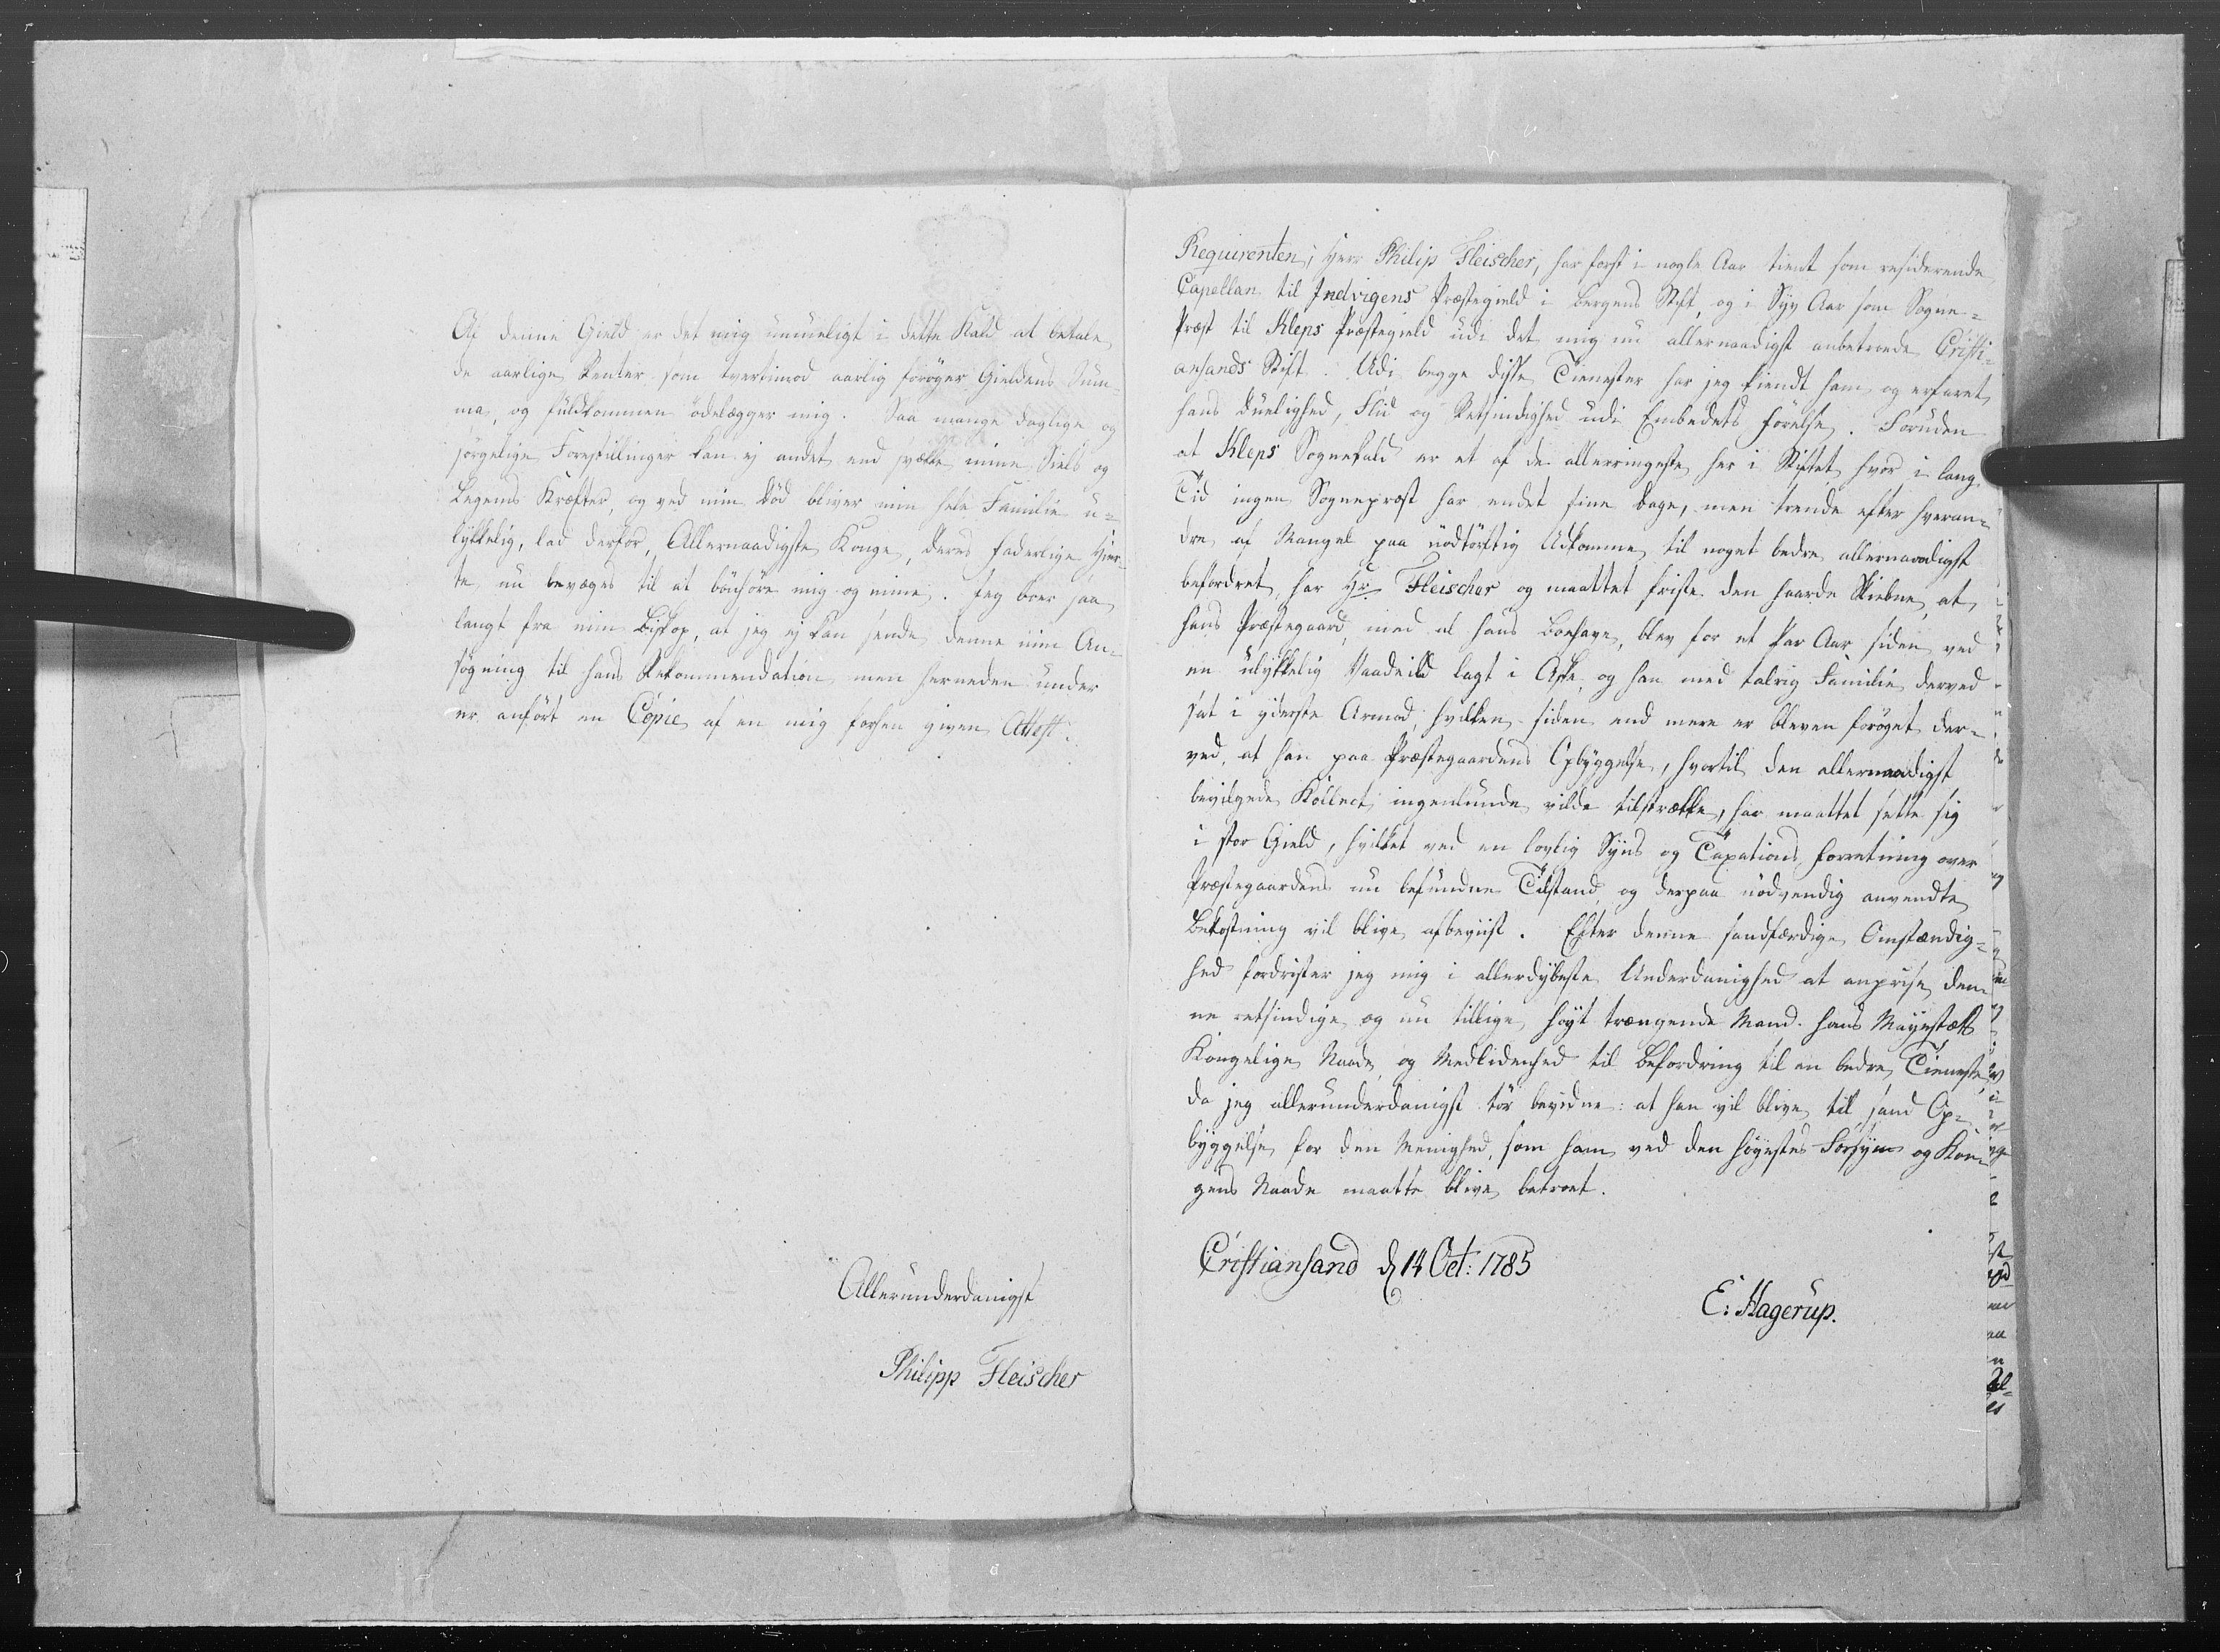 Af denne Gield er det mig umueligt i dette Kald at betale
de aarlige Renter som tvertimod aarlig forøger Gieldens Sum¬
ma, og fuldkommen ødelægger mig. Saa mange daglige og
sørgelige Forestillinger kan ej andet end svække mine Siels og
Legems Kræfter, og ved min Død bliver min hele Familie u¬
lykkelig, lad derfor, Allernaadigste Konge, Deres faderlige Hier¬
te nu bevæges til at bønhøre mig og mine. Jeg boer saa
langt fra min Biskop, at jeg ej kan sende denne min An¬
søgning til hans Rekommendation men herneden under
er anført en Copie af en mig forhen given Attest.
Allerunderdanigst
Philipp Fleischer
Requirenten, Herr Philip Fleischer, har først i nogle Aar tient som residerende
Capellan til Indvigens Præstegield i Bergens Stift, og i Syv Aar som Sogne¬
Præst til Kleps Præstegield udi det mig nu allernaadigst anbetroede Cristi¬
ansands Stift. Udi begge disse Tienester har jeg kiendt ham og erfaret
hans Duelighed, Flid og Retsindighed udi Embedets Førelse. Foruden
at Kleps Sognekald er et af de allerringeste her i Stiftet, hvor i lang
Tid ingen Sognepræst har endet sine Dage, men trende efter hveran¬
dre af Mangel paa nødtørftig Udkomme til noget bedre allernaadigst
befordret, har Hr Fleischer og maattet friste den haarde Skiebne, at
hans Præstegaard, med al hans Boehave, blev for et Par Aar siden ved
en ulykkelig Vaadeild lagt i Aske, og han med talrig Familie derved
sat i yderste Armod, hvilken siden end mere er bleven forøget der¬
ved, at han paa Præstegaardens Opbyggelse, hvortil den allernaadigst
bevilgede Kollect ingenlunde vilde tilstrække, har maattet sette sig
i stor Gield, hvilket ved en lovlig Syns og Taxations Forretning over
Præstegaardens nu befundne Tilstand, og derpaa nødvendig anvendte
Bekostning vil blive afbeviist. Efter denne sandfærdige Omstændig¬
hed fordrister jeg mig i allerdybeste Underdanighed at anprise den¬
ne retsindige og nu tillige høyt trængende Mand hans Mayestæts
Kongelige Naade og Medlidenhed til Befordring til en bedre Tieneste,
da jeg allerunderdanigst tør bevidne: at han vil blive til sand Op¬
byggelse for den Menighed, som ham ved den høyestes Forsyn og Kon¬
gens Naade maatte blive betroet.
Cristiansand d 14 Oct: 1785
E: Hagerup.